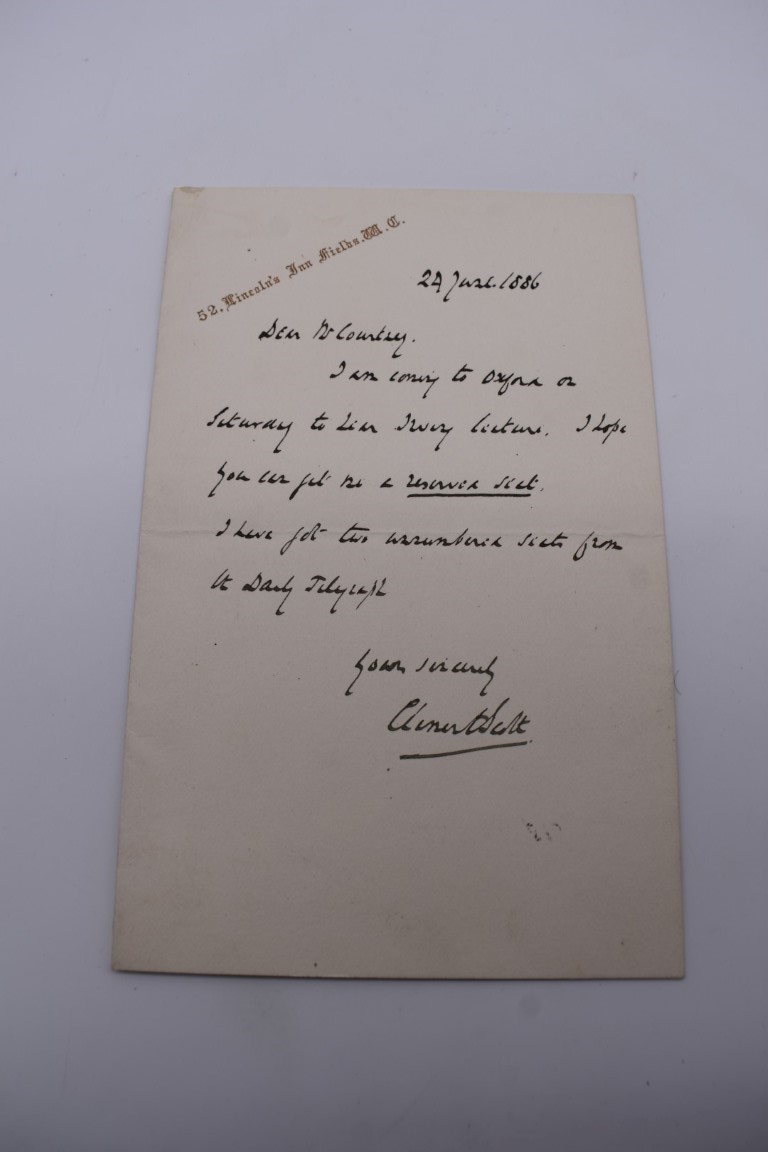 52, Lincoln's Inn Fields. W.C.
24 June. 1886
Dear Mr Courtney.
I am coming to Oxford on
Saturday to hear Irving lecture. I hope
you can get me a reserved seat.
I have got two unnumbered seats from
the Daily Telegraph
Yours sincerely
Clement Scott